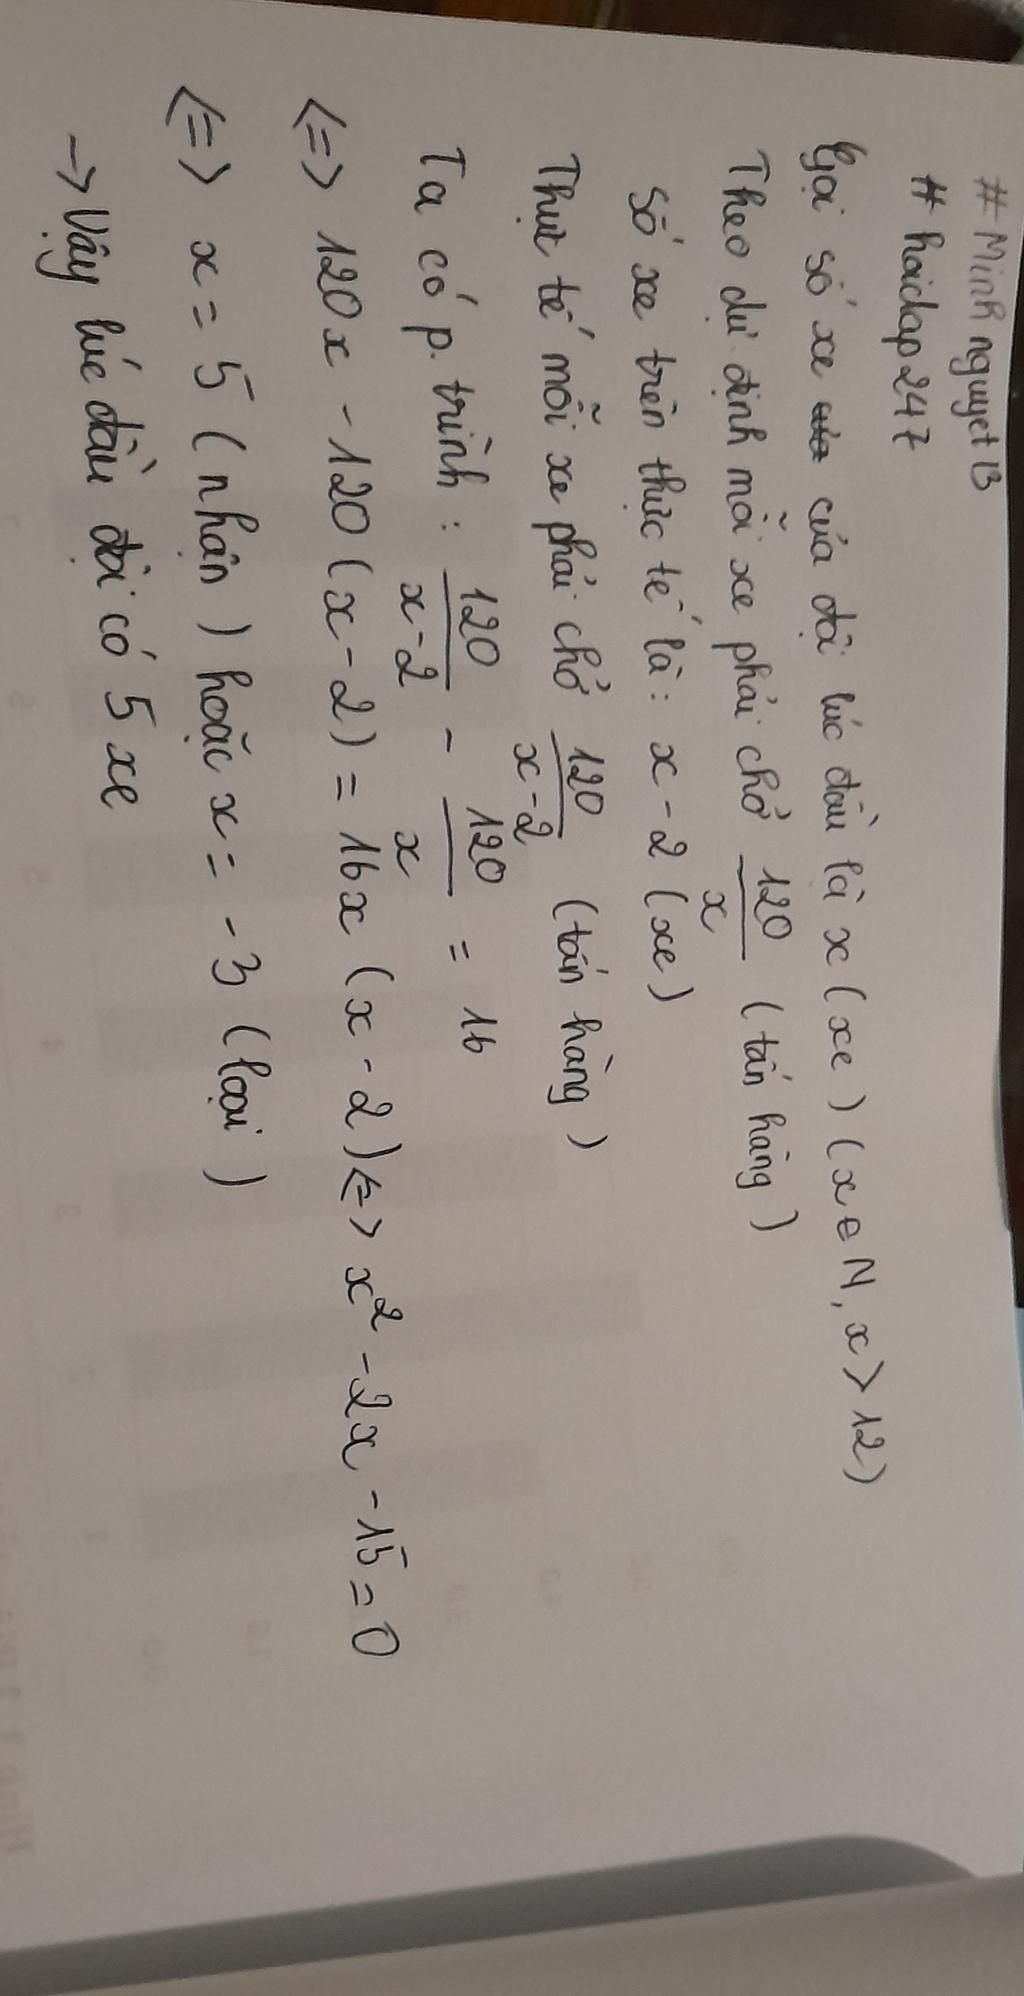 # Minh nguyet13
# hoidap247
Gọi số xe của đội lúc đầu là x (xe) (x ∈ N, x > 12)
Theo dự định mỗi xe phải chở 120/x (tấn hàng)
Số xe trên thực tế là: x - 2 (xe)
Thực tế mỗi xe phải chở 120/x-2 (tấn hàng)
Ta có p. trình : 120/x-2 - 120/x = 16
<=> 120x - 120 (x - 2) = 16x (x - 2) <=> x² - 2x - 15 = 0
<=> x = 5 (nhận) hoặc x = -3 (loại)
-> Vậy lúc đầu đội có 5 xe